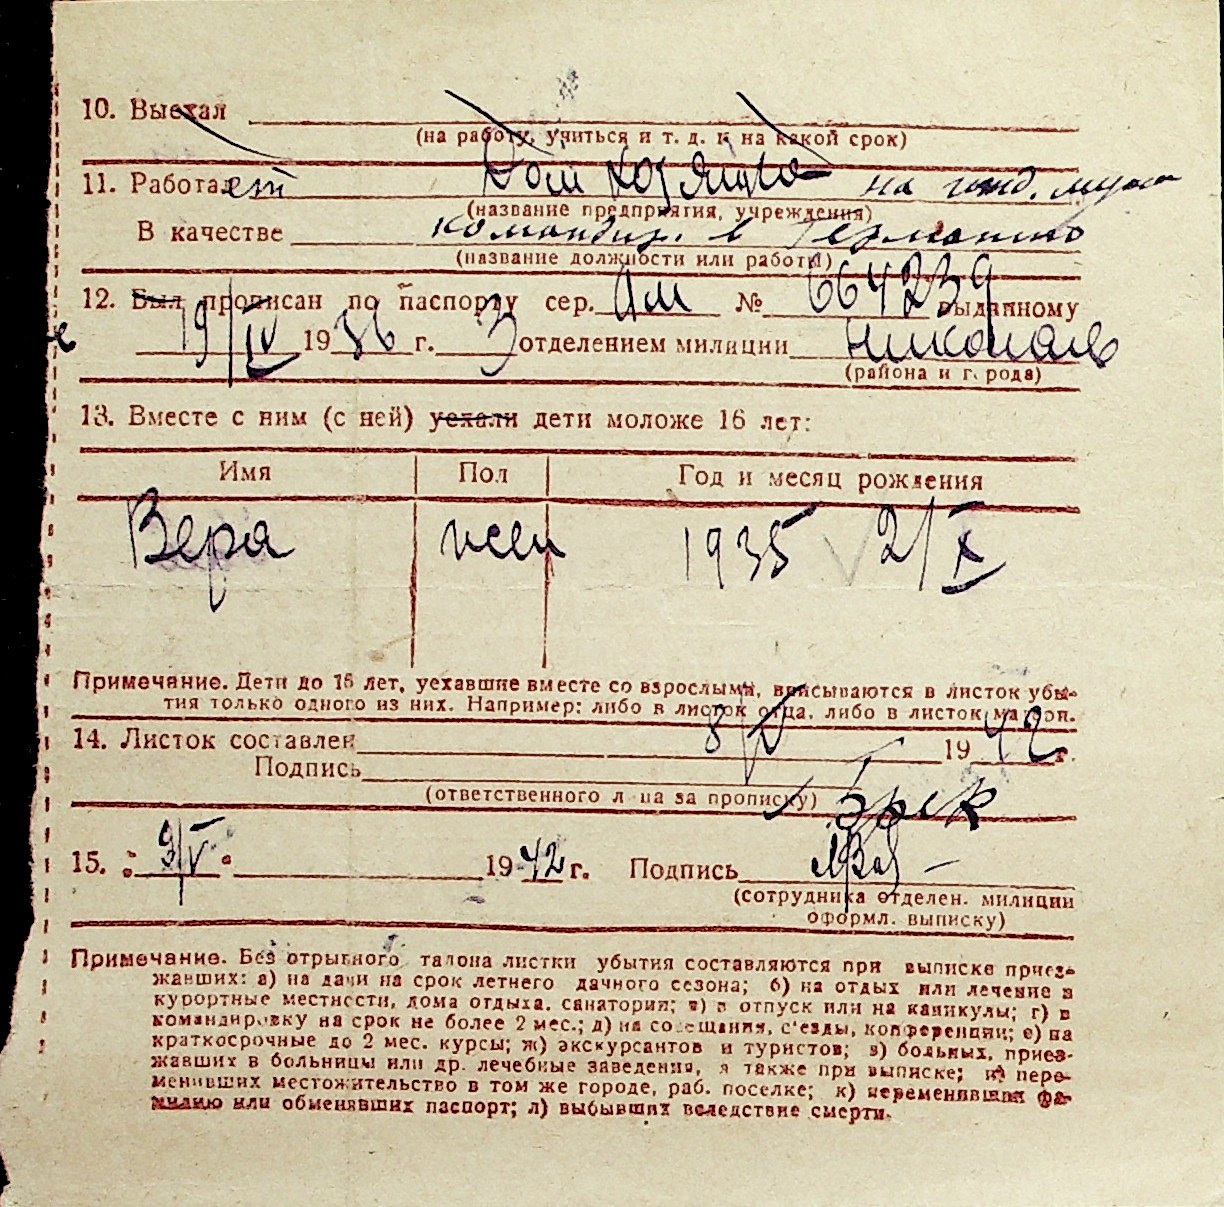 10. Выехал
(на работу, учиться и т. д. и на какой срок)
11. Работает Дом хозяйка на
(название предприятия, учреждения)
В качестве командир. в Германию
(название должности или работы)
12. Был прописан по паспорту сер. Ам № 664239 выданному
19/IV 1936 г. 3 отделением милиции Николаев
(района и города)
13. Вместе с ним (с ней) уехали дети моложе 16 лет:
Имя Пол Год и месяц рождения
Вера жен 1935 2/X
Примечание. Дети до 16 лет, уехавшие вместе со взрослыми, вписываются в листок убы-
тия только одного из них. Например: либо в листок отца, либо в листок матери.
14. Листок составлен 8/V 1942 г.
Подпись
(ответственного лица за прописку)
15. „9/V“ 1942 г. Подпись
(сотрудника отделен. милиции
оформл. выписку)
Примечание. Без отрывного талона листки убытия составляются при выписке приез-
жавших: а) на дачи на срок летнего дачного сезона; б) на отдых или лечение в
курортные местности, дома отдыха, санатории; в) в отпуск или на каникулы; г) в
командировку на срок не более 2 мес.; д) на совещания, с'езды, конференции; е) на
краткосрочные до 2 мес. курсы; ж) экскурсантов и туристов; з) больных, приез-
жавших в больницы или др. лечебные заведения, а также при выписке; и) пере-
менивших местожительство в том же городе, раб. поселке; к) переменивших фа-
милию или обменявших паспорт; л) выбывших вследствие смерти.